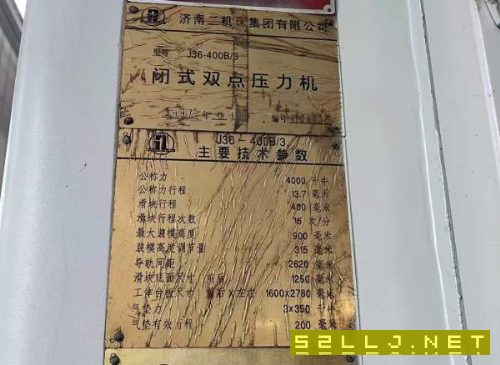 济南二机床集团有限公司
型号 J36-400B/3
闭式双点压力机
编号
J36-400B/3
主要技术参数
公称力 4000 千牛
公称力行程 13.7 毫米
滑块行程 400 毫米
滑块行程次数 16 次/分
最大装模高度 900 毫米
装模高度调节量 315 毫米
导轨间距 2620 毫米
滑块底面尺寸 前后 1250 毫米
工作台板尺寸 前后X左右 1600X2780 毫米
气垫力 3X350 千牛
气垫有效行程 200 毫米
52LLJ.NET